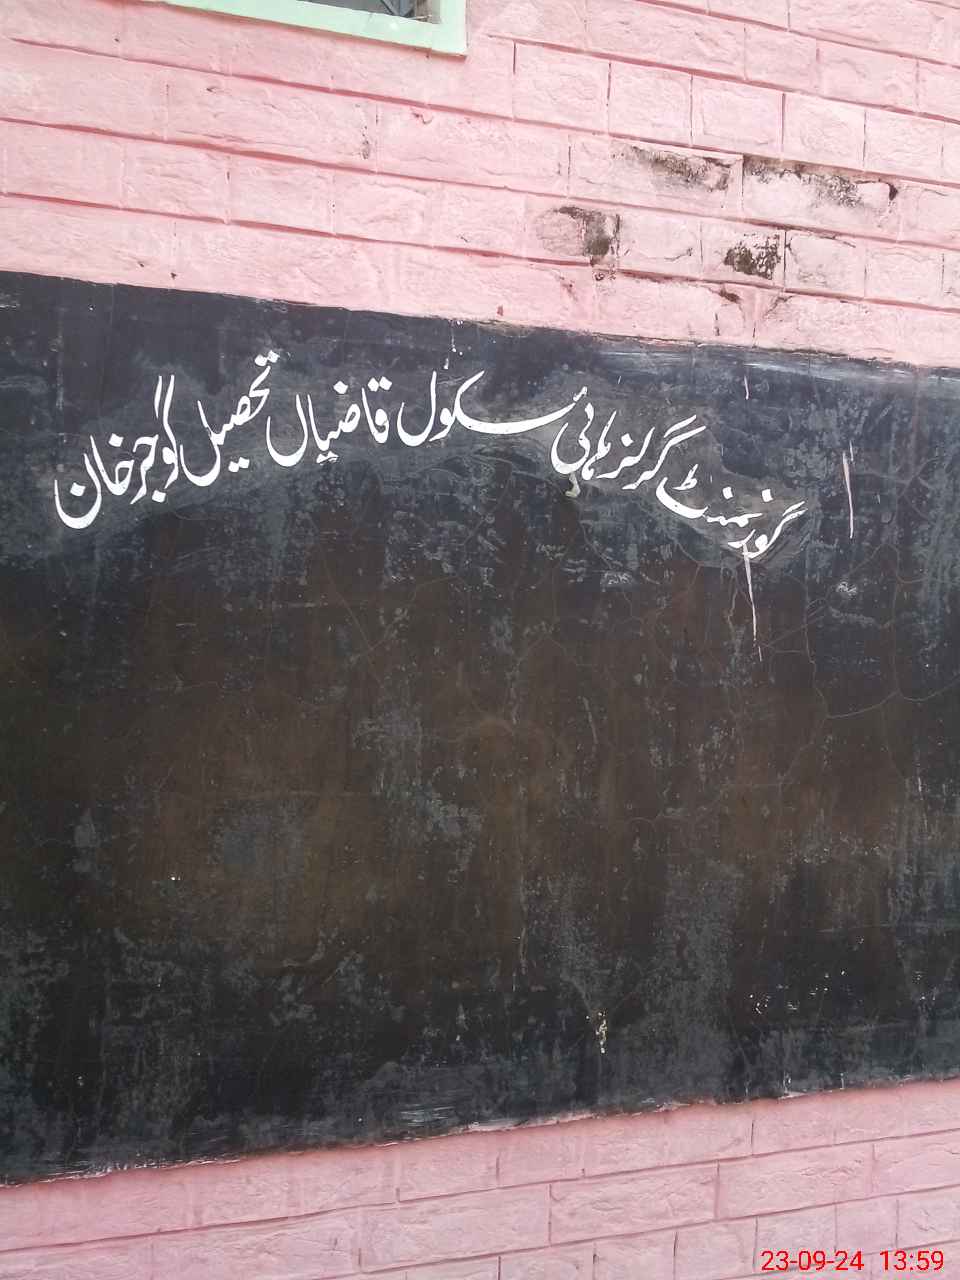 گورنمنٹ گرلز ہائی سکول قاضیاں تحصیل گوجرخان
23-09-24 13:59